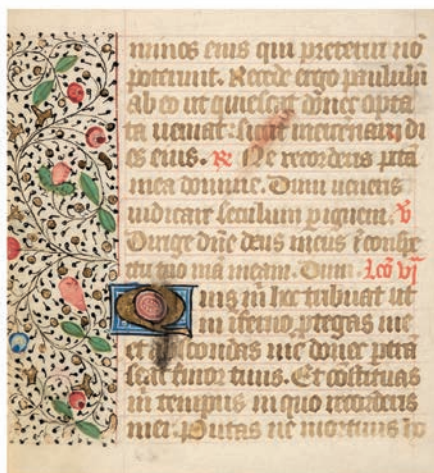 minos eius qui preterui nō
poterunt. Recede ergo paululū
ab eo ut quiescat donec opta
ta ueniat sicut mercenarii di
es eius. ℟ Ne recorderis pctā
mea domine. Dum ueneris
iudicare seculum p ignem. ℣
Dirige dn̄e deus meus ī conspe
ctu tuo uiā meam. Dum lcō vi
Quis m̄ hoc tribuat ut
in īferno ptegas me
et abscondas me donec ptrā
seat furor tuus. Et cōstituas
m̄ tempus in quo recorderis
mei. Putas ne mortuus ho